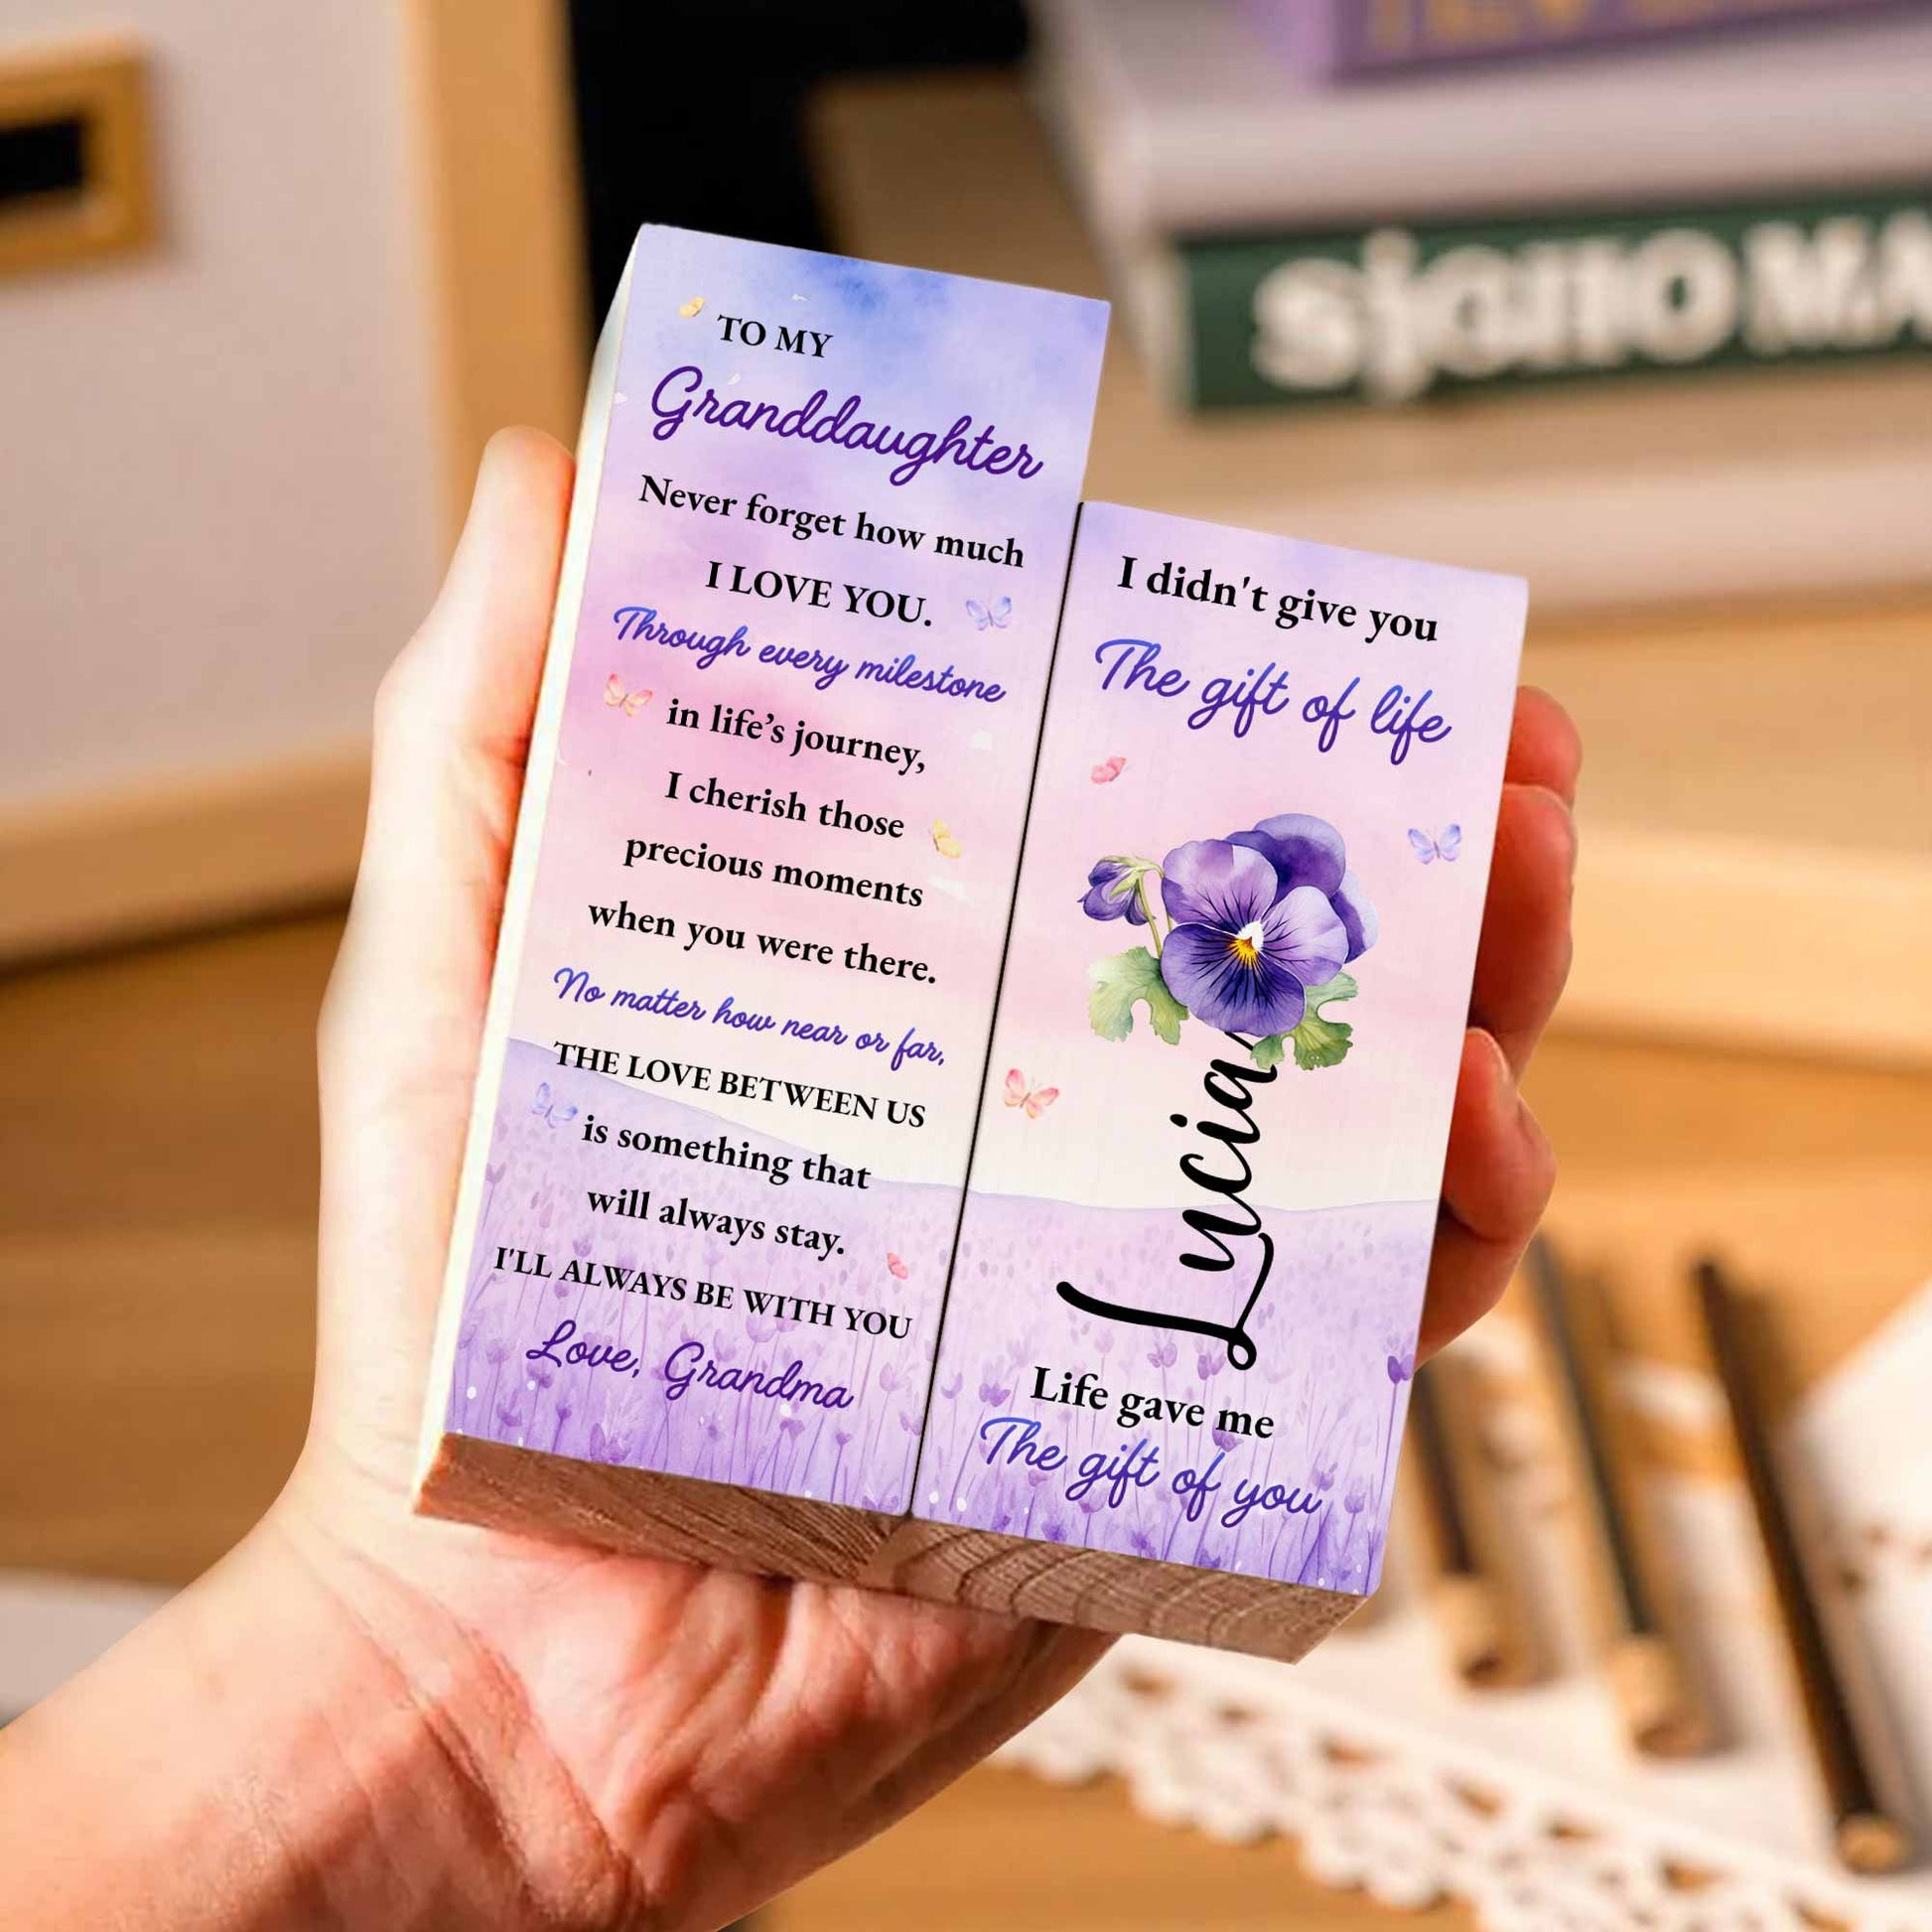 TO MY
Granddaughter
Never forget how much
I LOVE YOU.
Through every milestone
in life’s journey,
I cherish those
precious moments
when you were there.
No matter how near or far,
THE LOVE BETWEEN US
is something that
will always stay.
I'LL ALWAYS BE WITH YOU
Love, Grandma
I didn't give you
The gift of life
Lucia
Life gave me
The gift of you